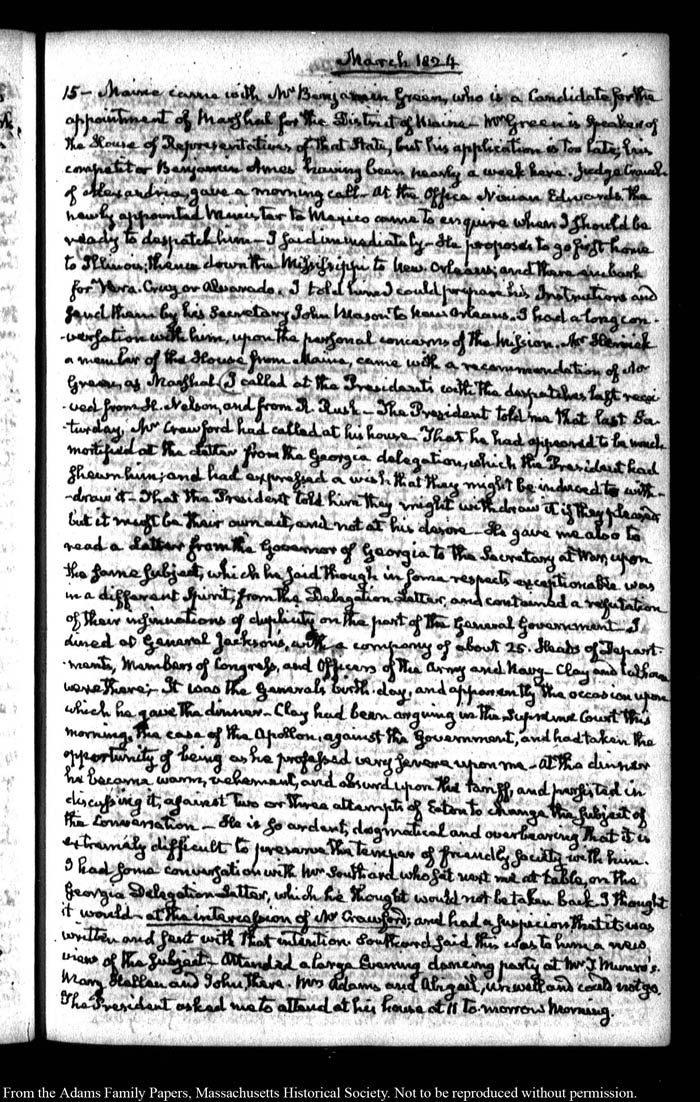 March 1824
15 – Maine came with Mr Benjamin Green, who is a Candidate for the
appointment of Marshal for the District of Maine – Mr Green is Speaker of
the House of Representatives of that State, but his application is too late; his
competitor Benjamin Ames having been nearly a week here. Judge Cranch
of Alexandria gave a morning call – At the Office Ninian Edwards, the
newly appointed Minister to Mexico came to enquire when I should be
ready to despatch him – I said immediately – He proposes to go first home
to Illinois; thence down the Mississippi to New Orleans; and there embark
for Vera-Cruz or Alvarado. I told him I could prepare his Instructions and
send them by his Secretary John Mason to New Orleans. I had a long con-
-versation with him, upon the personal concerns of the Mission. Mr Herrick
a member of the House from Maine, came with a recommendation of Mr
Green, as Marshal (I called at the Presidents with the despatches last recei
-ved from H. Nelson, and from R. Rush – The President told me that last Sa-
turday, Mr Crawford had called at his house. That he had appeared to be much
mortified at the letter from the Georgia delegation, which the President had
shewn him; and had expressed a wish that they might be induced to with-
-draw it – That the President told him they might withdraw it if they pleased
but it must be their own act, and not at his desire – He gave me also to
read a Letter from the Governor of Georgia to the Secretary at War, upon
the same subject, which he said though in some respects exceptionable was
in a different Spirit, from the Delegation Letter, and contained a refutation
of their insinuations of duplicity on the part of the General Government I
dined at General Jackson's, with a company of about 25. Heads of Depart-
-ments, Members of Congress, and Officers of the Army and Navy – Clay and Calhoun
were there; – It was the General's birth-day, and apparently the occasion upon
which he gave the dinner – Clay had been arguing in the Supreme Court this
morning, the case of the Apollon, against the Government, and had taken the
opportunity of being as he professed very severe upon me – At the dinner
he became warm, vehement, and absurd upon the tariff, and persisted in
discussing it, against two or three attempts of Eaton to change the subject of
the Conversation – He is so ardent, dogmatical and overbearing that it is
extremely difficult to preserve the temper of friendly society with him.
I had some conversation with Mr Southard who sat next me at table, on the
Georgia Delegation Letter, which he thought would not be taken back I thought
it would – at the intercession of Mr Crawford; and had a suspicion that it was
written and sent with that intention. Southard said this was to him a new
view of the subject – Attended a large Evening dancing party at Mr T. Munro's.
Mary Hellen and John there. Mrs Adams and Abigail, unwell and could not go.
The President asked me to attend at his house at 11 to-morrow Morning.
From the Adams Family Papers, Massachusetts Historical Society. Not to be reproduced without permission.